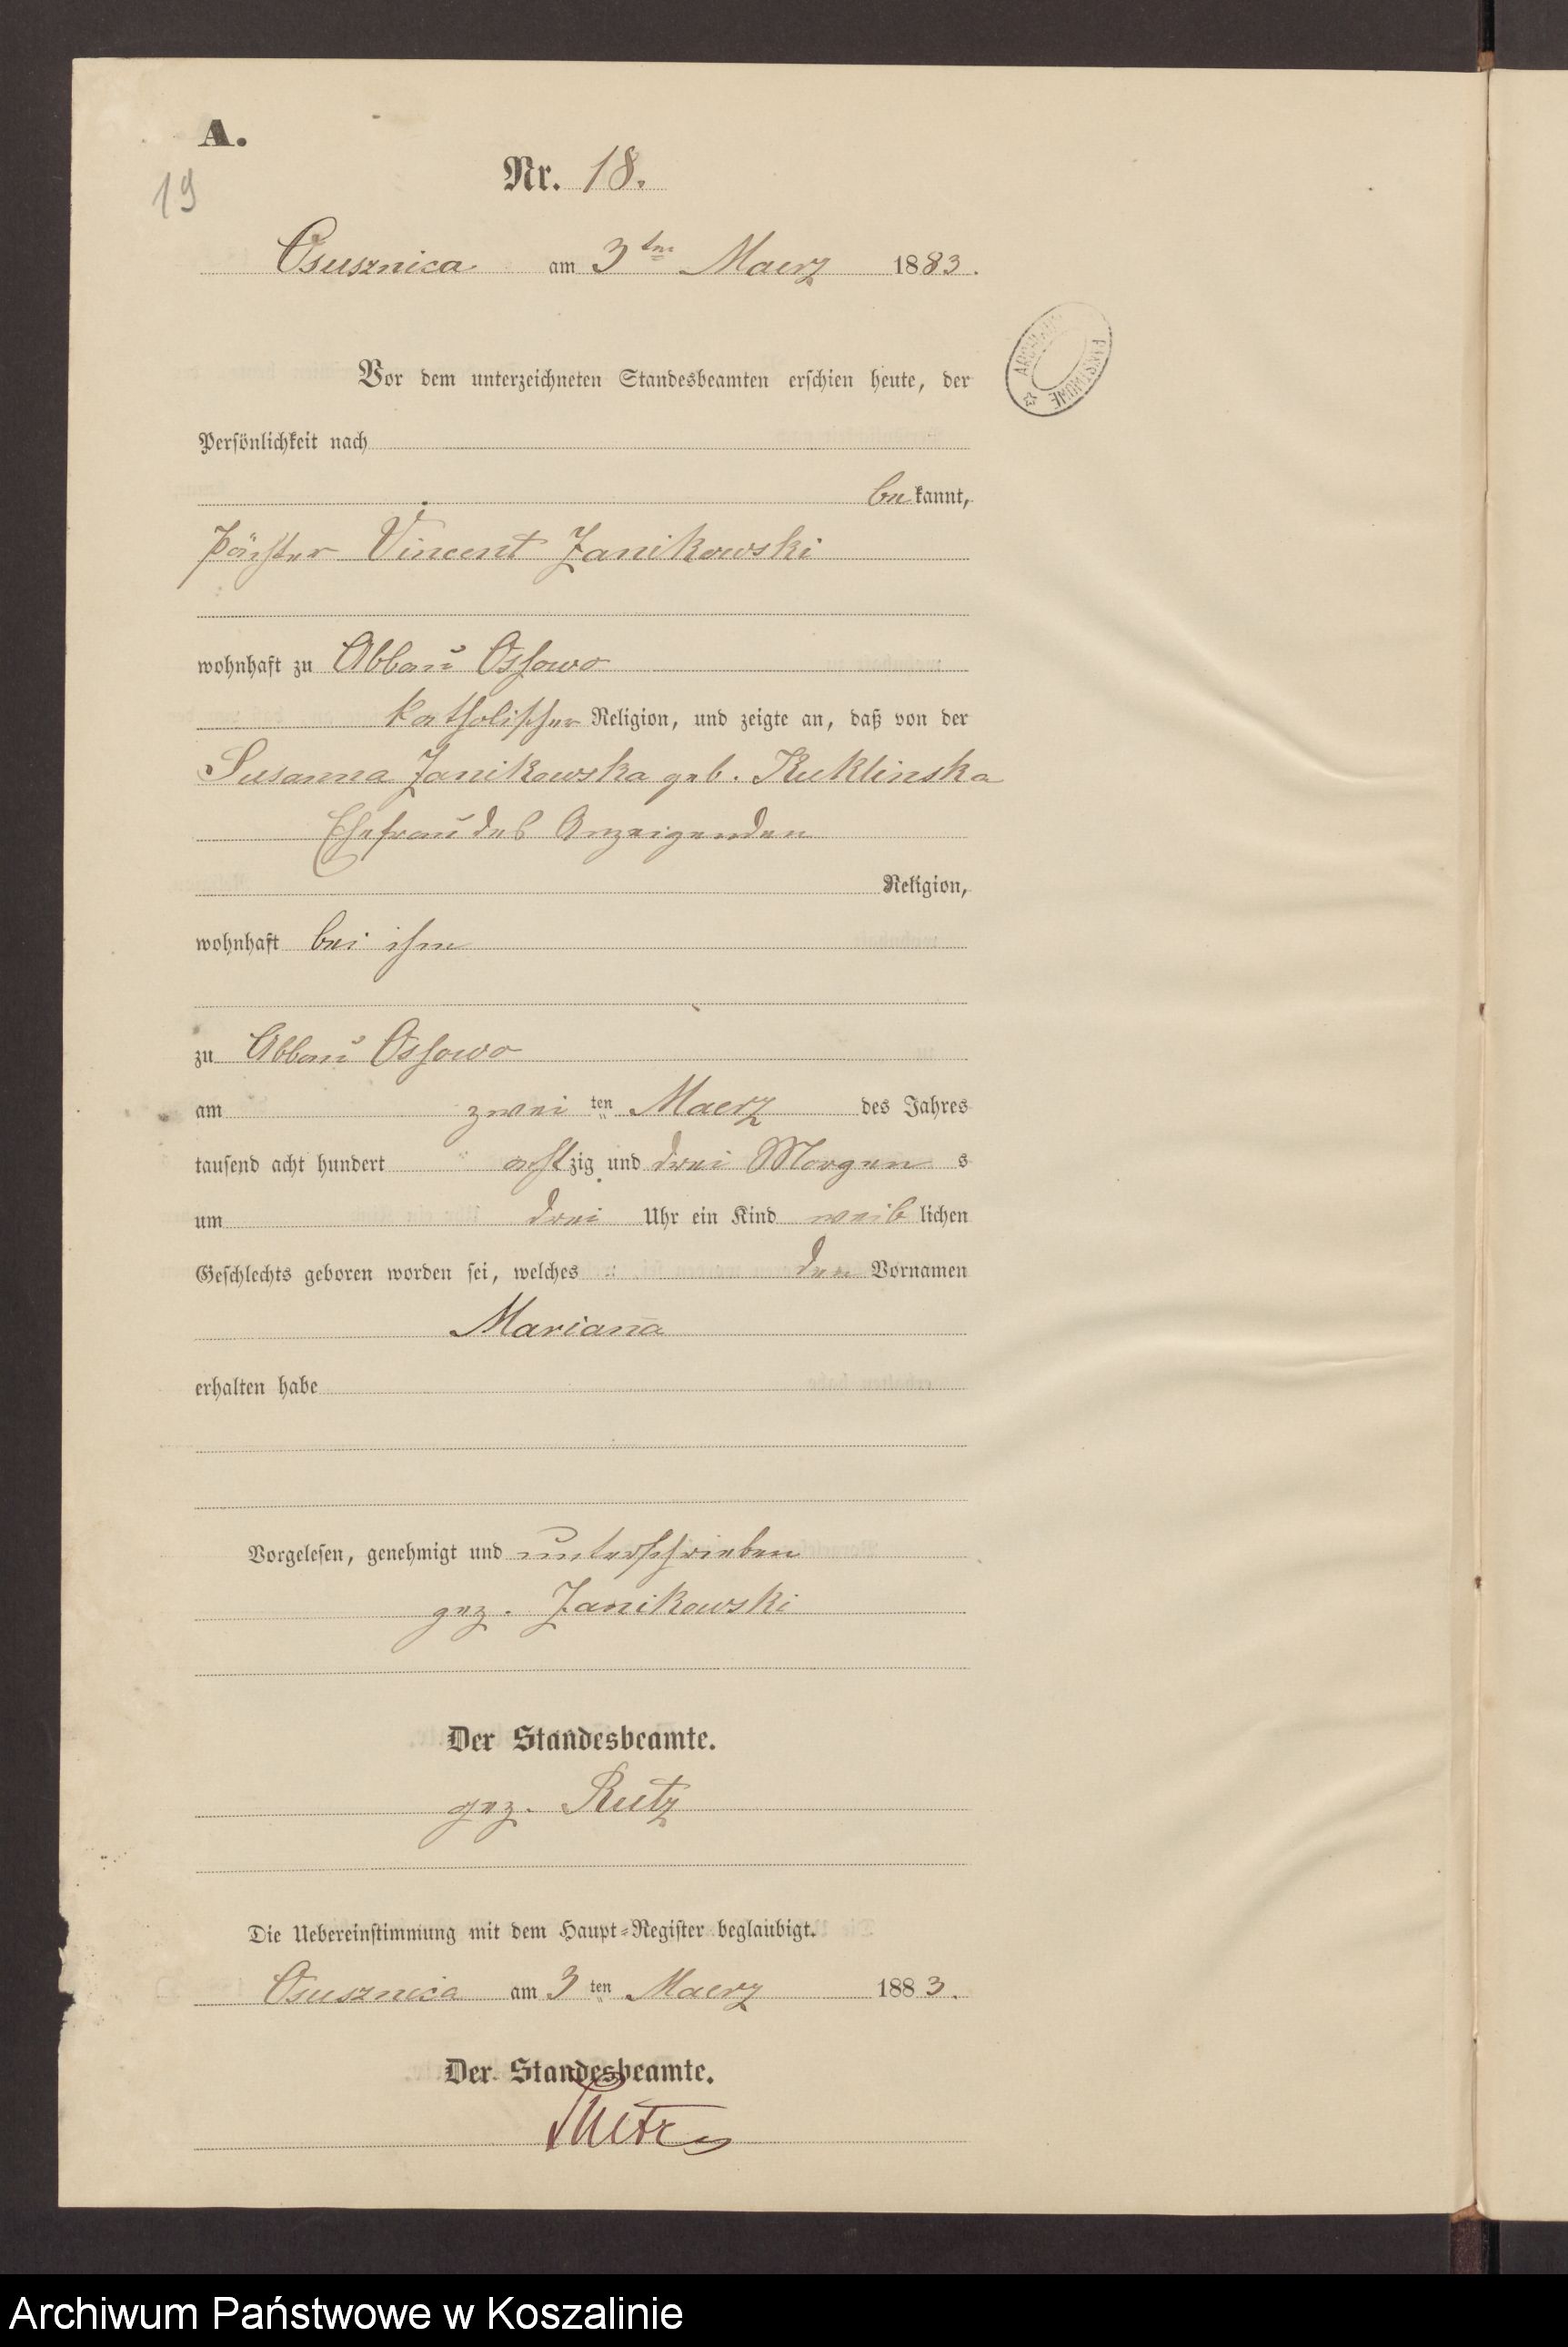 A.
19
Nr. 18.
Osusznica am 3ten Maerz 1883.
ARCHIWUM PAŃSTWOWE
Vor dem unterzeichneten Standesbeamten erschien heute, der
Persönlichkeit nach
be kannt,
Vincent Janikowski
wohnhaft zu Abbau Ossowo
katholischer Religion, und zeigte an, daß von der
Susanna Janikowska geb. Kuklinska
Ehefrau des Anzeigenden
Religion,
wohnhaft bei ihm
zu Abbau Ossowo
am zwei ten Maerz des Jahres
tausend acht hundert acht zig und drei Morgen s
um drei Uhr ein Kind weib lichen
Geschlechts geboren worden sei, welches den Vornamen
Mariana
erhalten habe
Vorgelesen, genehmigt und unterschrieben
gez. Janikowski
Der Standesbeamte.
gez. Rutz
Die Uebereinstimmung mit dem Haupt-Register beglaubigt.
Osusznica am 3 ten Maerz 1883.
Der Standesbeamte.
Rutz
Archiwum Państwowe w Koszalinie